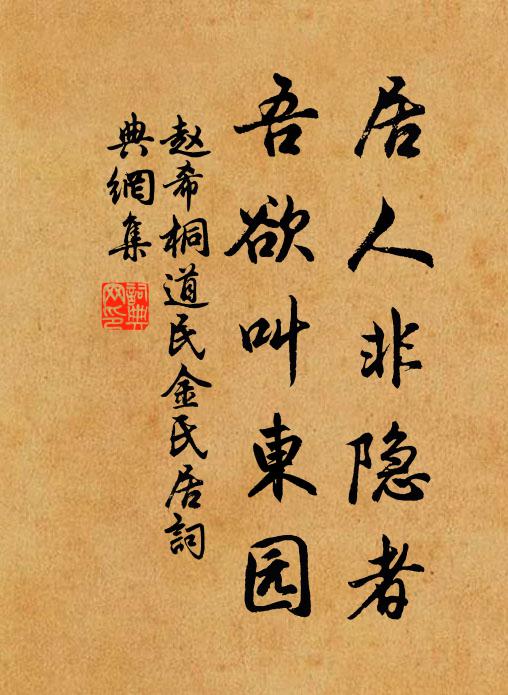 居人非隐者
吾欲叫東园
赵希桐道民金氏居詞
典網集
詞典网印